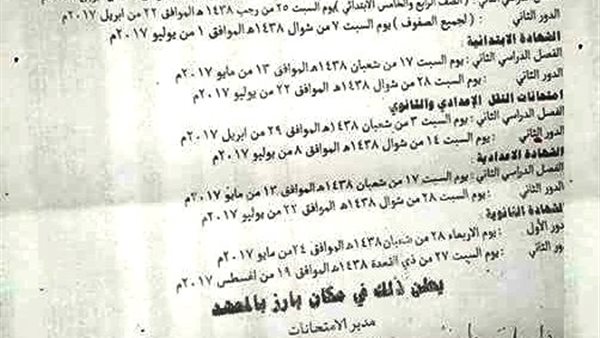 الفصل الدراسي الثاني : ( الصف الرابع والخامس الابتدائي ) يوم السبت ٢٥ من رجب ١٤٣٨هـ الموافق ٢٢ من ابريل ٢٠١٧م
الدور الثاني : ( لجميع الصفوف ) يوم السبت ٧ من شوال ١٤٣٨هـ الموافق ١ من يوليو ٢٠١٧م
الشهادة الابتدائية :
الفصل الدراسي الثاني : يوم السبت ١٧ من شعبان ١٤٣٨هـ الموافق ١٣ من مايو ٢٠١٧م
الدور الثاني : يوم السبت ٢٨ من شوال ١٤٣٨هـ الموافق ٢٢ من يوليو ٢٠١٧م
امتحانات النقل الإعدادي والثانوي
الفصل الدراسي الثاني : يوم السبت ٣ من شعبان ١٤٣٨هـ الموافق ٢٩ من ابريل ٢٠١٧م
الدور الثاني : يوم السبت ١٤ من شوال ١٤٣٨هـ الموافق ٨ من يوليو ٢٠١٧م
الشهادة الاعدادية :
الفصل الدراسي الثاني : يوم السبت ١٧ من شعبان ١٤٣٨هـ الموافق ١٣ من مايو ٢٠١٧م
الدور الثاني : يوم السبت ٢٨ من شوال ١٤٣٨هـ الموافق ٢٢ من يوليو ٢٠١٧م
الشهادة الثانوية :
دور الأول : يوم الاربعاء ٢٨ من شعبان ١٤٣٨هـ الموافق ٢٤ من مايو ٢٠١٧م
ور الثاني : يوم السبت ٢٧ من ذي القعدة ١٤٣٨هـ الموافق ١٩ من اغسطس ٢٠١٧م
يعلن ذلك في مكان بارز بالمعهد
مدير الامتحانات